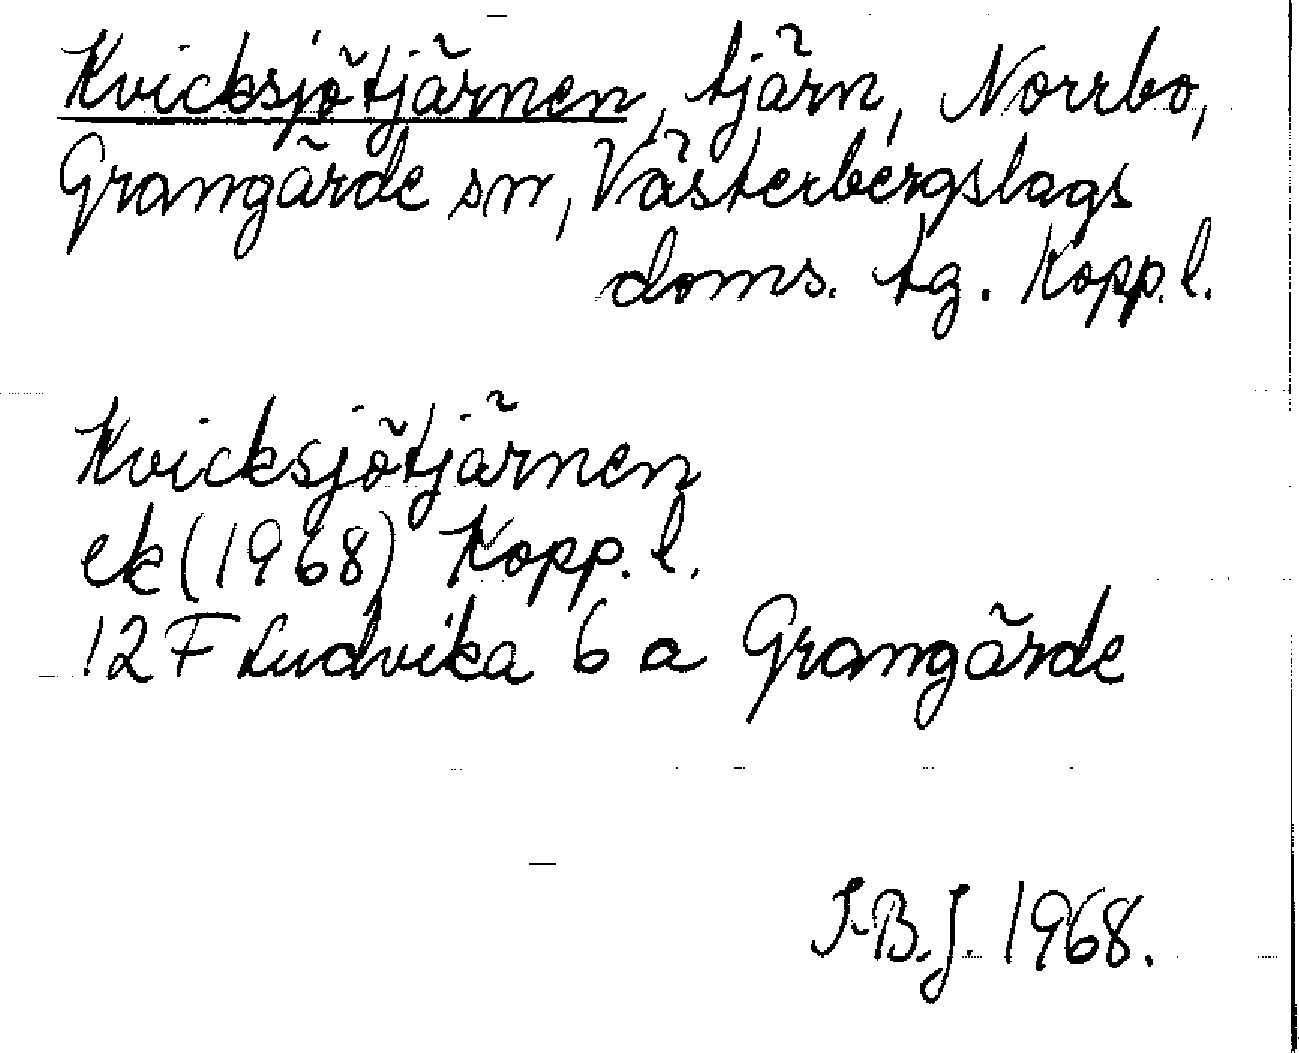 Kvicksjötjärnen, tjärn, Norrbo,
Grangärde sn, Västerbergslags
doms. tg. Kopp.l.
Kvicksjötjärnen
ek (1968) Kopp.l.
12F Ludvika 6 a Grangärde
I-B.J. 1968.